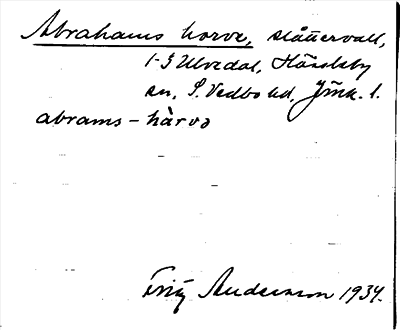 Abrahams horve, slåttervall,
1-3 Ulvedal, Hässleby
sn, S. Vedbo hd, Jönk. l.
abrams - hàrvə
Fritz Anderson 1934.